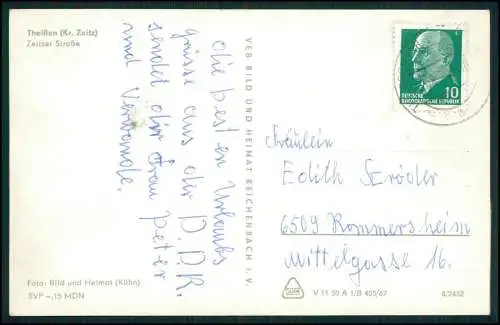 Theißen (Kr. Zeitz)
Zeitzer Straße
die besten Urlaubs
grüsse aus der D.D.R.
sendet dir Frau Peter
und Verwande.
Foto: Bild und Heimat (Kühn)
EVP -,15 MDN
VEB BILD UND HEIMAT REICHENBACH i. V.
10
DEUTSCHE
DEMOKRATISCHE REPUBLIK
Fräulein
Edith
6509 Rommersheim
Mittelgasse 16.
V 11 50 A I/B 405/67
6/2452